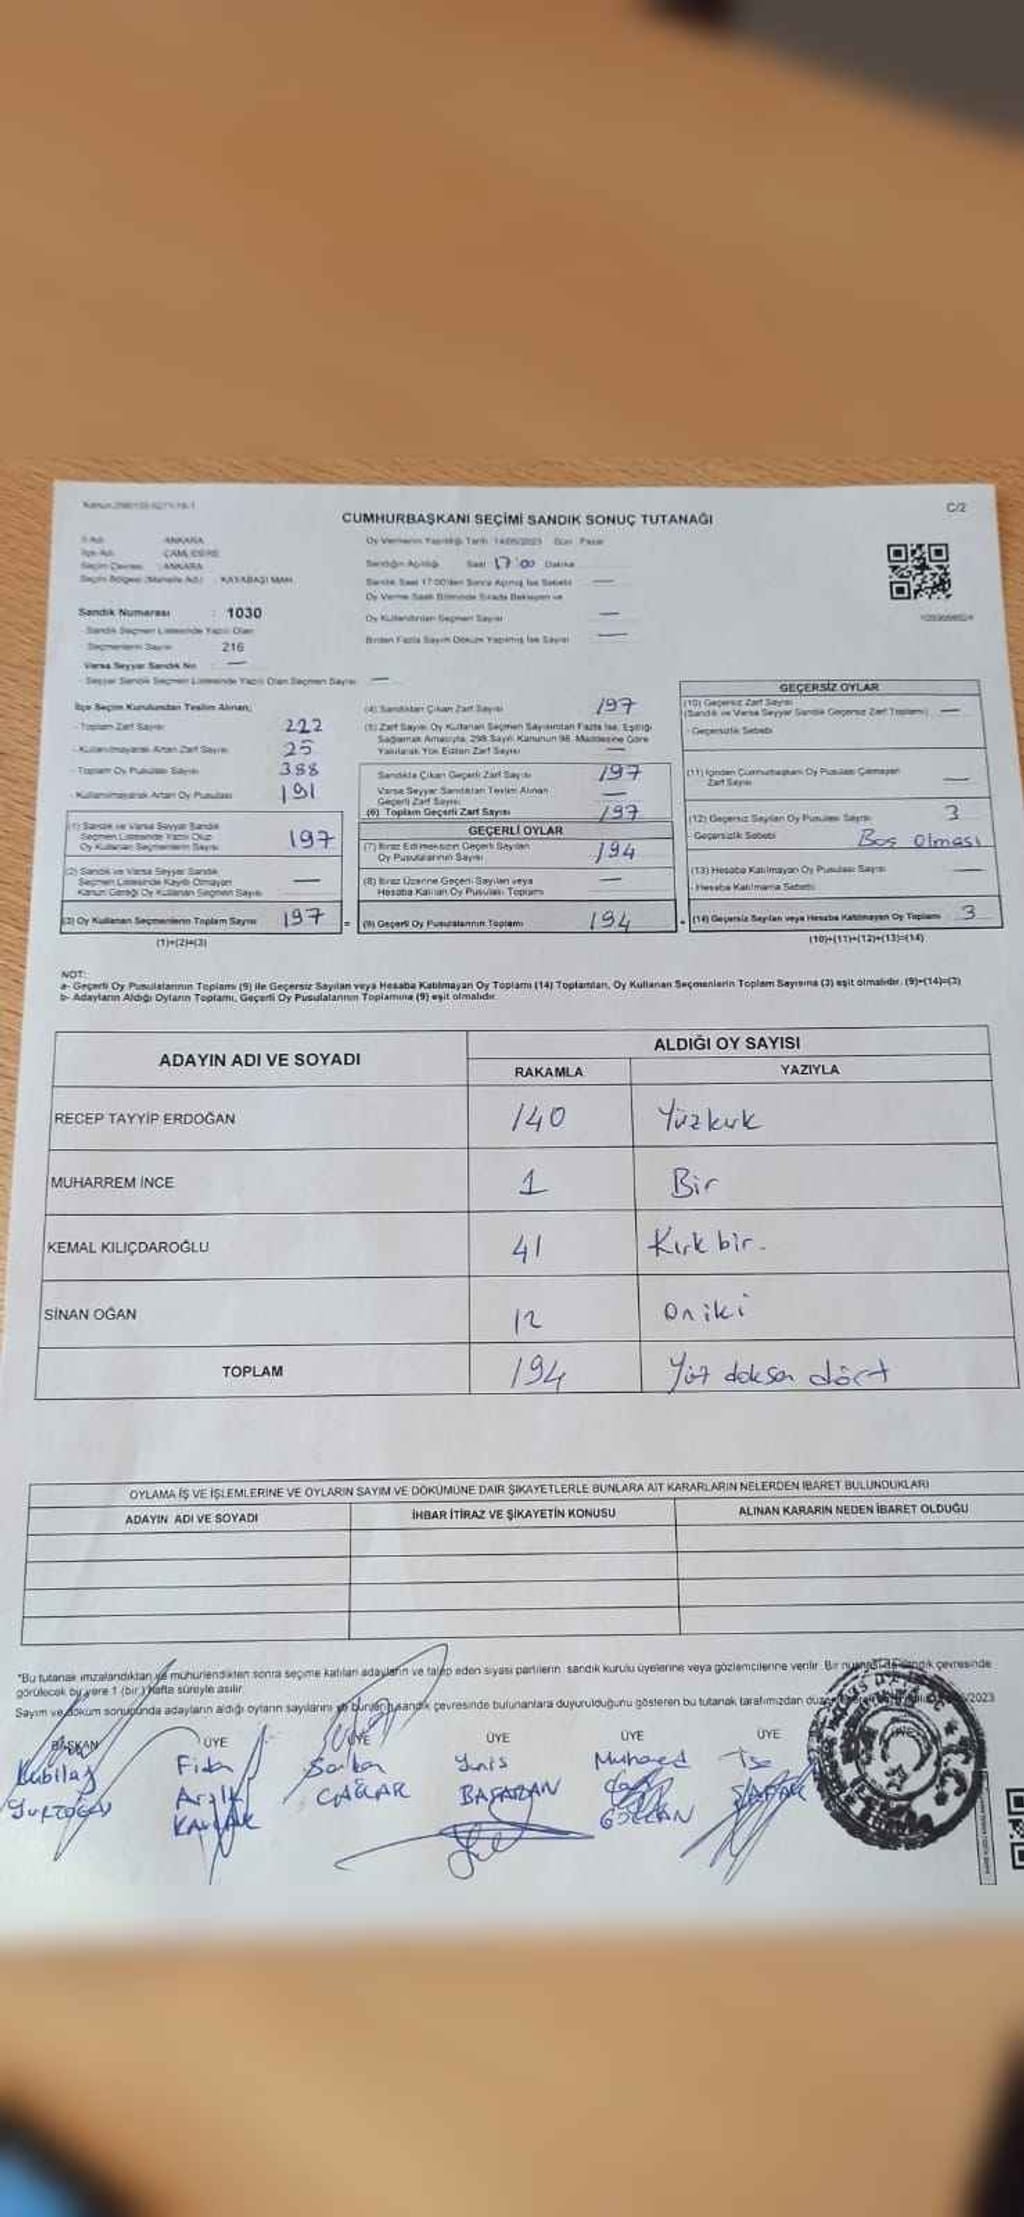 C/2
CUMHURBAŞKANI SEÇİMİ SANDIK SONUÇ TUTANAĞI
İl Adı ANKARA
İlçe Adı ÇAMLIDERE
Seçim Çevresi : ANKARA
Seçim Bölgesi (Mahalle Adı) : KAYABAŞI MAH.
Sandık Numarası : 1030
Sandık Seçmen Listesinde Yazılı Olan
Seçmenlerin Sayısı 216
Varsa Seyyar Sandık No —
Seyyar Sandık Seçmen Listesinde Yazılı Olan Seçmen Sayısı —
Oy Vermenin Yapıldığı Tarih 14/05/2023 Gün Pazar
Sandığın Açıldığı Saat 17:00 Dakika
Sandık Saat 17:00'den Sonra Açılmış İse Sebebi —
Oy Verme Saati Bitiminde Sırada Bekleyen ve
Oy Kullandırılan Seçmen Sayısı —
Birden Fazla Sayım Döküm Yapılmış İse Sayısı —
İlçe Seçim Kurulundan Teslim Alınan;
- Toplam Zarf Sayısı 222
- Kullanılmayarak Artan Zarf Sayısı 25
- Toplam Oy Pusulası Sayısı 388
- Kullanılmayarak Artan Oy Pusulası 191
(1) Sandık ve Varsa Seyyar Sandık
Seçmen Listesinde Yazılı Olup
Oy Kullanan Seçmenlerin Sayısı 197
(2) Sandık ve Varsa Seyyar Sandık
Seçmen Listesinde Kayıtlı Olmayan
Kanun Gereği Oy Kullanan Seçmen Sayısı —
(3) Oy Kullanan Seçmenlerin Toplam Sayısı 197
(1)+(2)=(3)
(4) Sandıktan Çıkan Zarf Sayısı 197
(5) Zarf Sayısı Oy Kullanan Seçmen Sayısından Fazla İse, Eşitliği
Sağlamak Amacıyla, 298 Sayılı Kanunun 98. Maddesine Göre
Yakılarak Yok Edilen Zarf Sayısı —
Sandıkta Çıkan Geçerli Zarf Sayısı 197
Varsa Seyyar Sandıktan Teslim Alınan
Geçerli Zarf Sayısı —
(6) Toplam Geçerli Zarf Sayısı 197
GEÇERLİ OYLAR
(7) İtiraz Edilmeksizin Geçerli Sayılan
Oy Pusulalarının Sayısı 194
(8) İtiraz Üzerine Geçerli Sayılan veya
Hesaba Katılan Oy Pusulası Toplamı —
(9) Geçerli Oy Pusulalarının Toplamı 194
GEÇERSİZ OYLAR
(10) Geçersiz Zarf Sayısı
(Sandık ve Varsa Seyyar Sandık Geçersiz Zarf Toplamı) —
- Geçersizlik Sebebi
(11) İçinden Cumhurbaşkanı Oy Pusulası Çıkmayan
Zarf Sayısı —
(12) Geçersiz Sayılan Oy Pusulası Sayısı 3
- Geçersizlik Sebebi Boş olması
(13) Hesaba Katılmayan Oy Pusulası Sayısı —
- Hesaba Katılmama Sebebi
(14) Geçersiz Sayılan veya Hesaba Katılmayan Oy Toplamı 3
(10)+(11)+(12)+(13)=(14)
NOT:
a- Geçerli Oy Pusulalarının Toplamı (9) ile Geçersiz Sayılan veya Hesaba Katılmayan Oy Toplamı (14) Toplamları, Oy Kullanan Seçmenlerin Toplam Sayısına (3) eşit olmalıdır. (9)+(14)=(3)
b- Adayların Aldığı Oyların Toplamı, Geçerli Oy Pusulalarının Toplamına (9) eşit olmalıdır.
ADAYIN ADI VE SOYADI
ALDIĞI OY SAYISI
RAKAMLA YAZIYLA
RECEP TAYYİP ERDOĞAN 140 Yüzkırk
MUHARREM İNCE 1 Bir
KEMAL KILIÇDAROĞLU 41 Kırk bir.
SİNAN OĞAN 12 on iki
TOPLAM 194 Yüz doksan dört
OYLAMA İŞ VE İŞLEMLERİNE VE OYLARIN SAYIM VE DÖKÜMÜNE DAİR ŞİKAYETLERLE BUNLARA AİT KARARLARIN NELERDEN İBARET BULUNDUKLARI
ADAYIN ADI VE SOYADI İHBAR İTİRAZ VE ŞİKAYETİN KONUSU ALINAN KARARIN NEDEN İBARET OLDUĞU
*Bu tutanak imzalandıktan ve mühürlendikten sonra seçime katılan adayların ve talep eden siyasi partilerin sandık kurulu üyelerine veya gözlemcilerine verilir. Bir nüshası da sandık çevresinde
görülecek bir yere 1 (bir) hafta süreyle asılır.
Sayım ve döküm sonucunda adayların aldığı oyların sayılarını ve bunların sandık çevresinde bulunanlara duyurulduğunu gösteren bu tutanak tarafımızdan /2023
BAŞKAN ÜYE ÜYE ÜYE ÜYE ÜYE
Kubilay
Fidan
Serkan ÇAĞLAR
Yunis